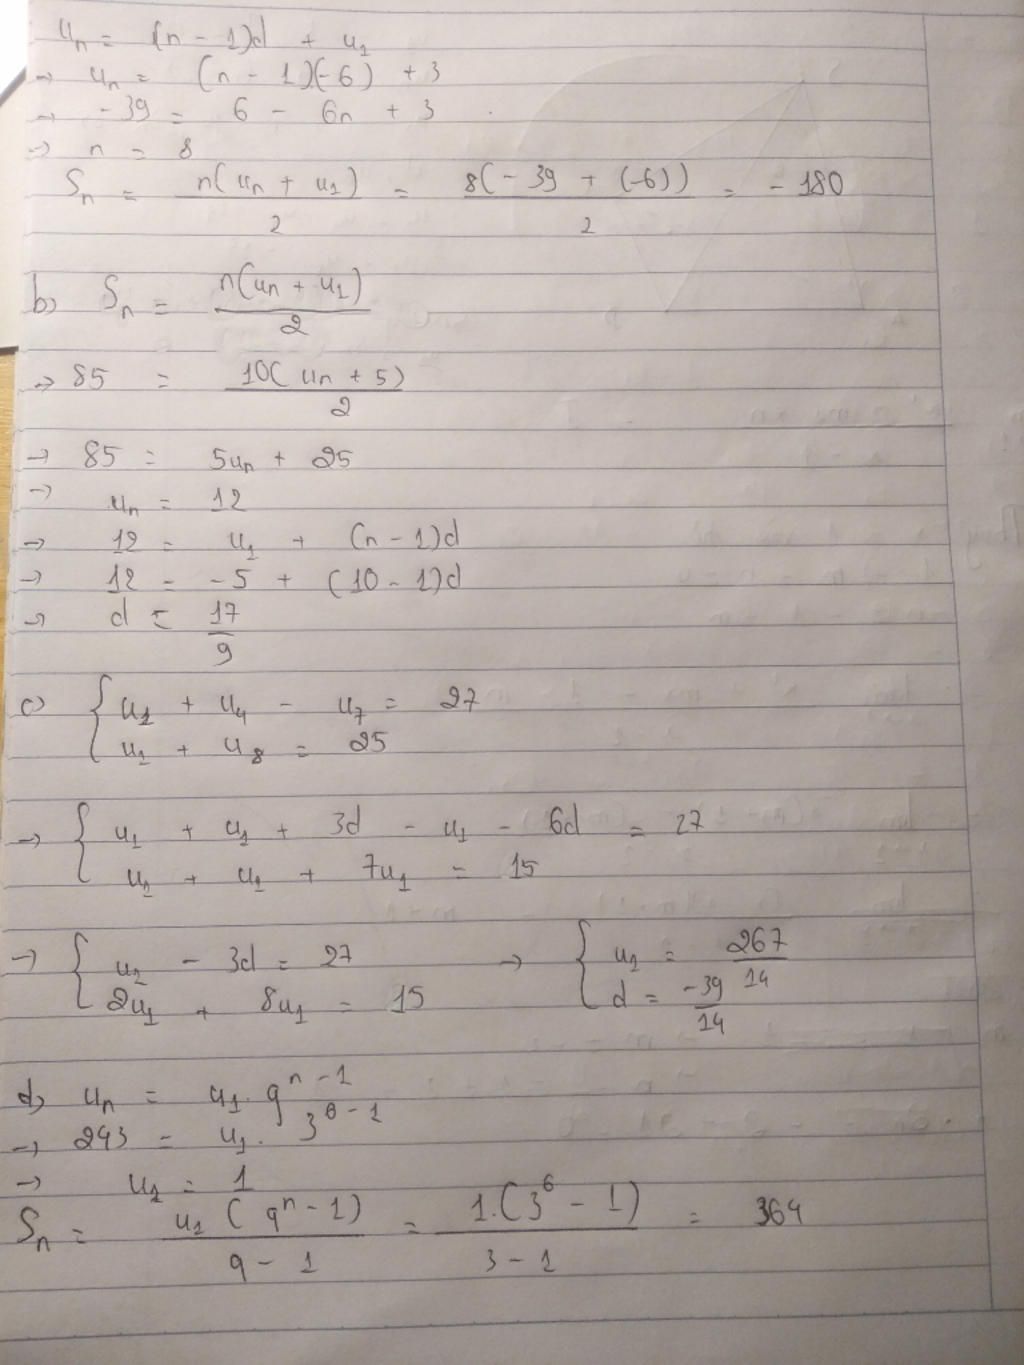 u_n = (n - 1)d + u_1
→ u_n = (n - 1)(-6) + 3
→ -39 = 6 - 6n + 3
→ n = 8
S_n = n(u_n + u_1) / 2 = 8(-39 + (-6)) / 2 = -180
b) S_n = n(u_n + u_1) / 2
→ 85 = 10(u_n + 5) / 2
→ 85 = 5u_n + 25
→ u_n = 12
→ 12 = u_1 + (n - 1)d
→ 12 = -5 + (10 - 1)d
→ d = 17/9
c) { u_1 + u_4 - u_7 = 27
u_1 + u_8 = 25
→ { u_1 + u_1 + 3d - u_1 - 6d = 27
u_1 + u_1 + 7u_1 = 15
→ { u_1 - 3d = 27 → { u_1 = 267/14
2u_1 + 8u_1 = 15 d = -39/14
d) u_n = u_1 . q^{n-1}
→ 243 = u_1 . 3^{6-1}
→ u_1 = 1
S_n = u_1(q^n - 1) / q - 1 = 1.(3^6 - 1) / 3 - 1 = 364